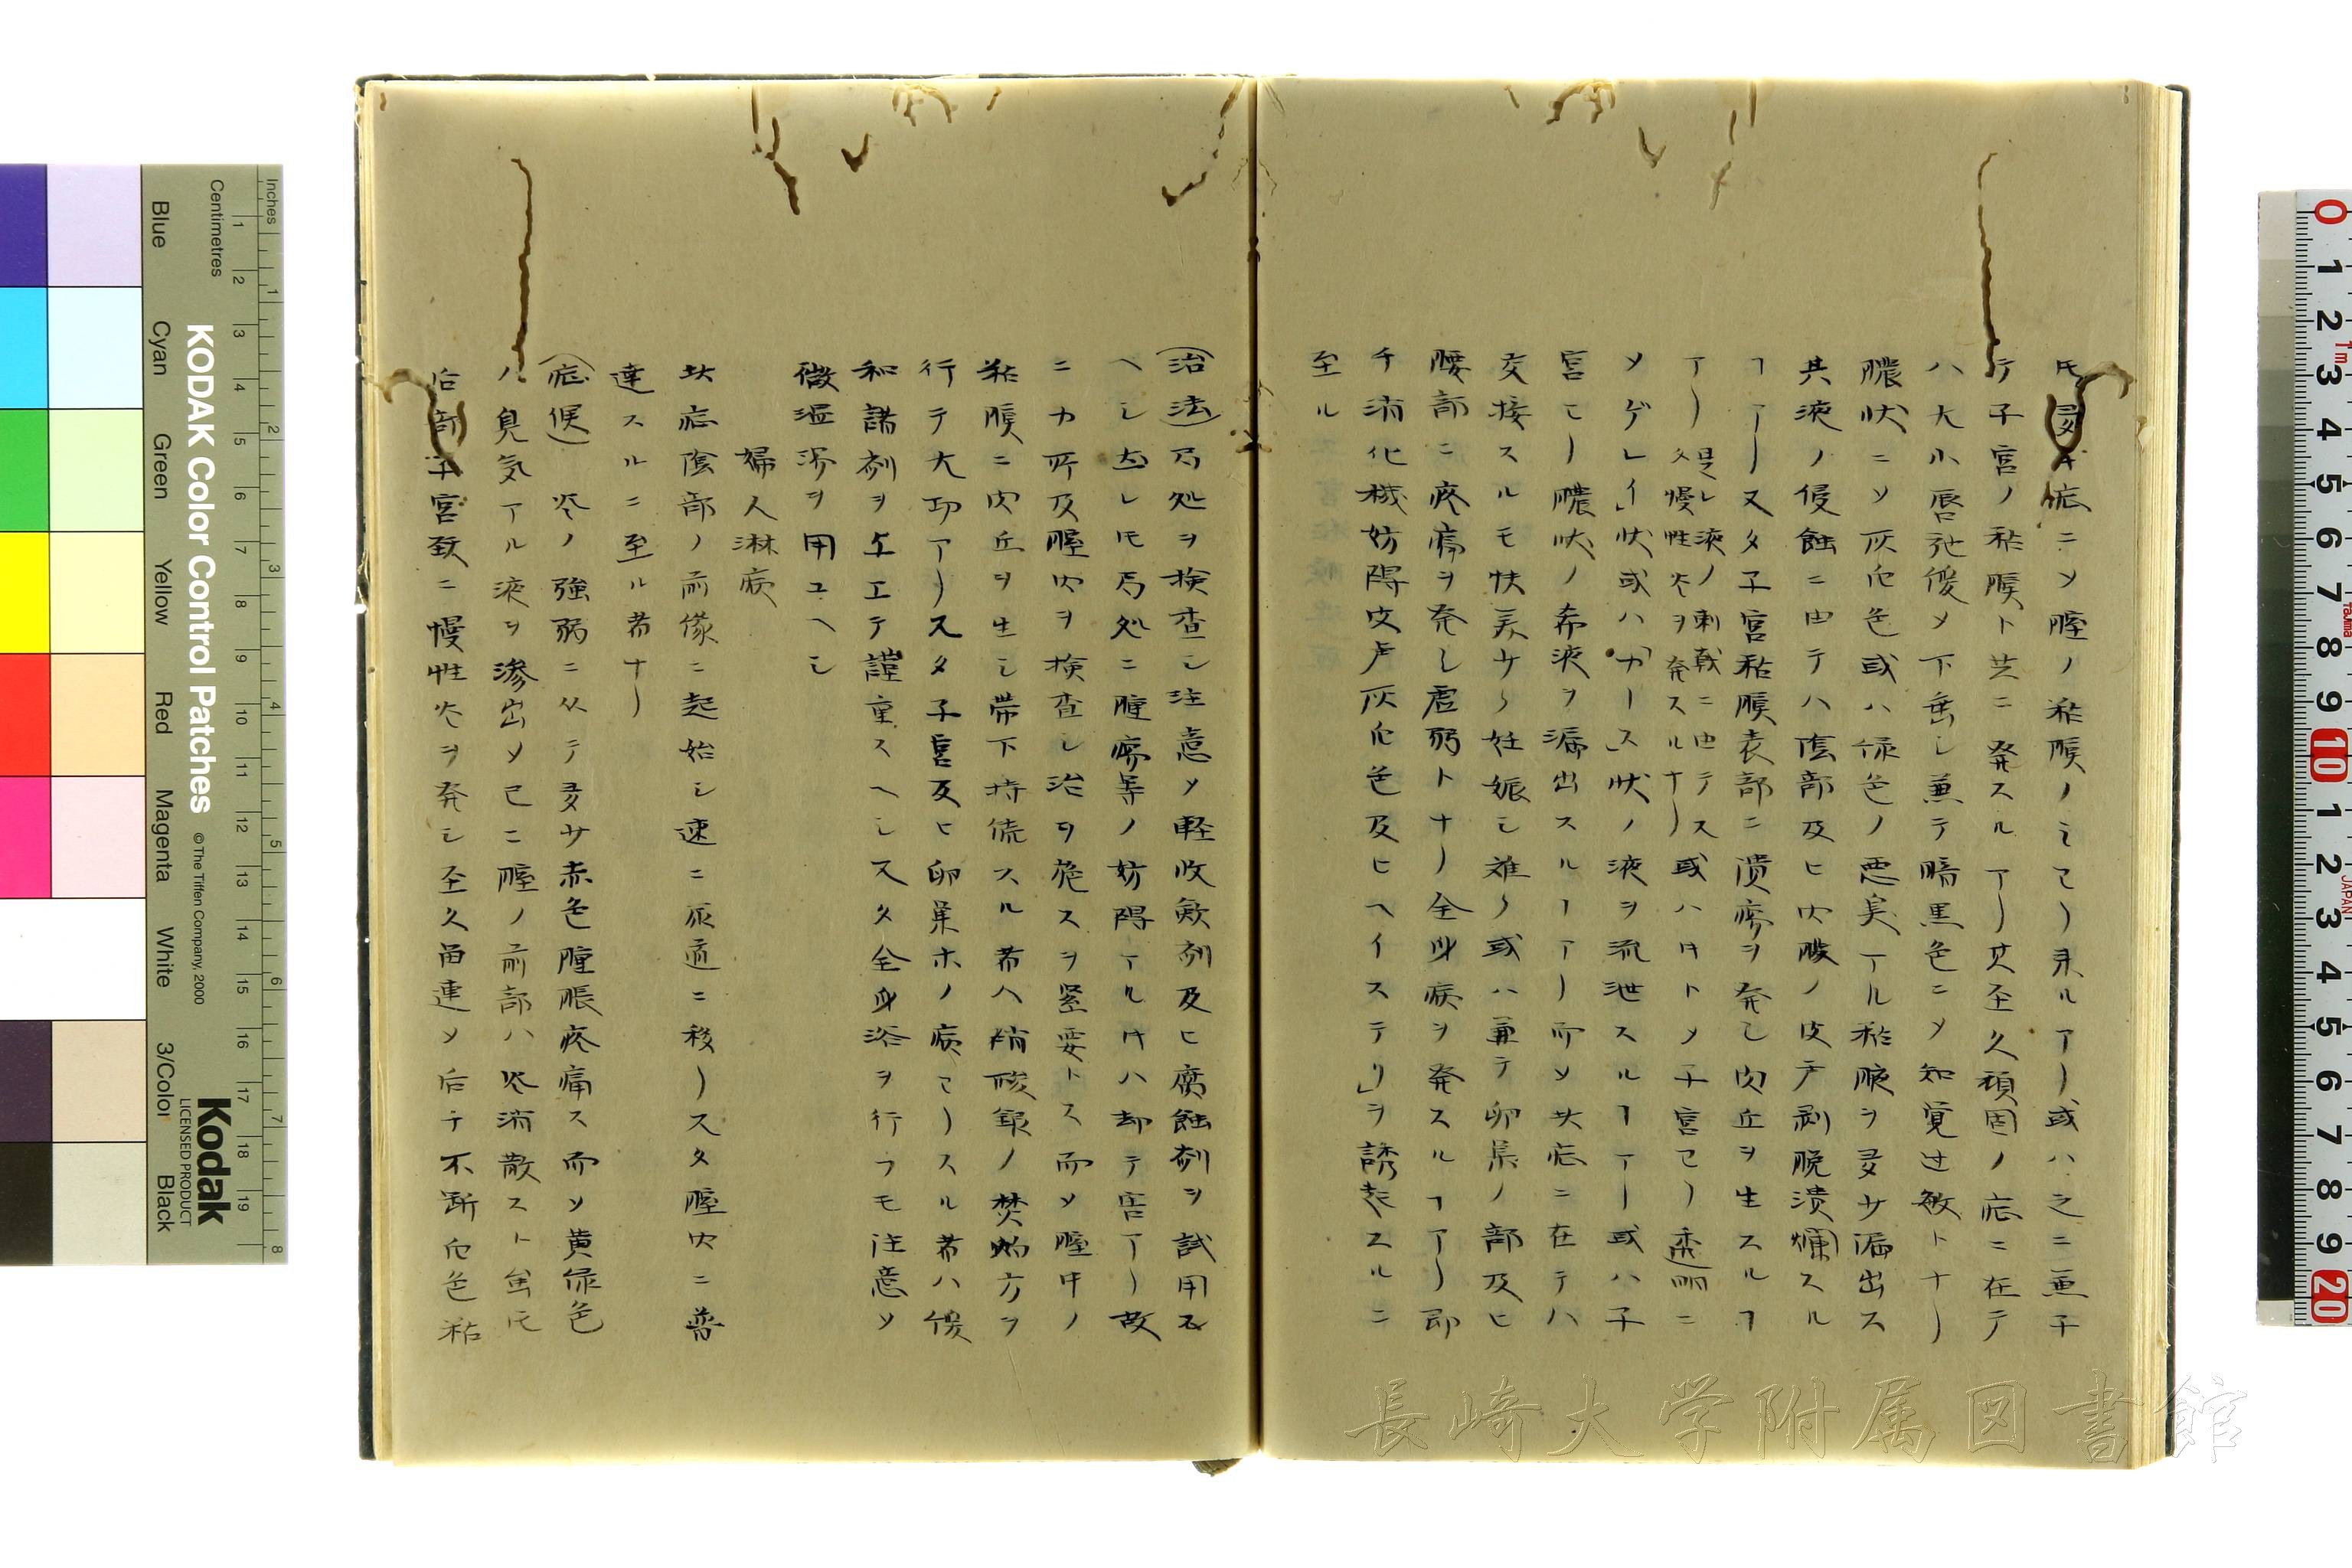 氏多キ症ニメ腟ノ粘膜ノミヨリ来ルアリ或ハ之ニ兼子
テ子宮ノ粘膜ト共ニ発スルアリ其至久頑固ノ症ニ在テ
ハ大小唇弛緩メ下垂シ兼テ暗黒色ニメ知覚过敏トナリ
膿状ニメ灰白色或ハ緑色ノ悪臭アル粘液ヲ多サ漏出ス
其液ノ侵蝕ニ由テハ陰部及ヒ内股ノ皮膚剥脱潰爛スル
ヿアリ又タ子宮粘膜表部ニ潰瘍ヲ発シ肉丘ヲ生スルヿ
アリ 是レ液ノ刺戟ニ由テス
又慢性炎ヲ発スルナリ 或ハ時トメ子宮ヨリ透明ニ
メ「ゲレイ」状或ハ「カース」状ノ液ヲ流泄スルヿアリ或ハ子
宮ヨリ膿状ノ希液ヲ漏出スルヿアリ而メ此症ニ在テハ
交接スルモ快美少ク妊娠シ難ク或ハ兼テ卵巣ノ部及ヒ
腰部ニ疼痛ヲ発シ虚弱トナリ全身病ヲ発スルヿアリ即
チ消化機妨碍皮膚灰白色及ヒ「ヘイステリ」ヲ誘起スルニ
至ル
(治法)局処ヲ検査シ注意メ軽收斂剤及ヒ腐蝕剤ヲ試用ス
ヘシ然レモ局処ニ腫瘍等ノ妨碍アル時ハ却テ害アリ故
ニ力所及腟内ヲ検査シ治ヲ施スヲ緊要トス而メ腟中ノ
粘膜ニ肉丘ヲ生シ帯下持続スル者ハ硝酸銀ノ焚灼方ヲ
行テ大功アリ又タ子宮及ヒ卵巣ホノ病ヨリスル者ハ緩
和諸剤ヲ与エテ謹重スヘシ又タ全身浴ヲ行フモ注意メ
微温湯ヲ用ユヘシ
婦人淋病
此症陰部ノ前様ニ起始シ速ニ尿道ニ移リ又タ腟内ニ蔓
達スルニ至ル者ナリ
(症候) 炎ノ強弱ニ从テ多サ赤色腫脹疼痛ス而メ黄緑色
ハ臭気アル液ヲ滲出メ已ニ腟ノ前部ハ炎消散スト雖モ
后部子宮頚ニ慢性炎ヲ発シ至久畄連メ后チ不断白色粘
Inches
Centimetres
Blue
Cyan
Green
Yellow
Red
Magenta
White
3/Color
Black
KODAK Color Control Patches
© The Tiffen Company, 2000
Kodak
LICENSED PRODUCT
長崎大学附属図書館